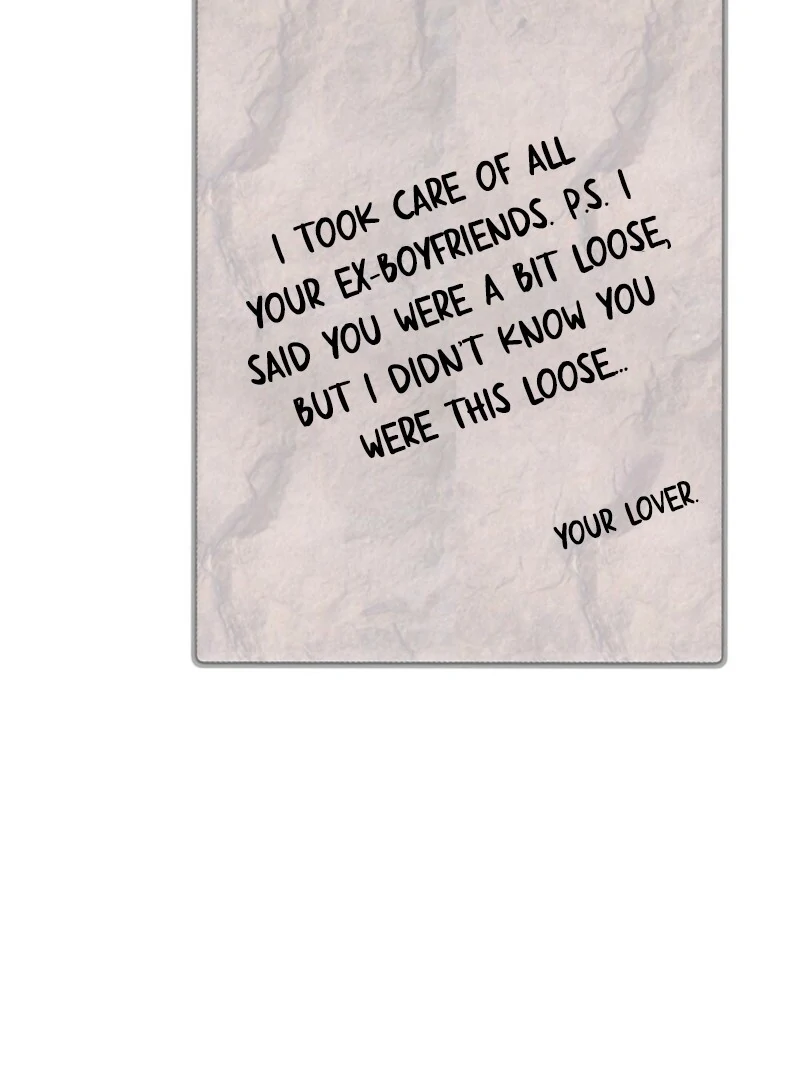 I TOOK CARE OF ALL
YOUR EX-BOYFRIENDS. P.S. I
SAID YOU WERE A BIT LOOSE,
BUT I DIDN'T KNOW YOU
WERE THIS LOOSE..
YOUR LOVER.